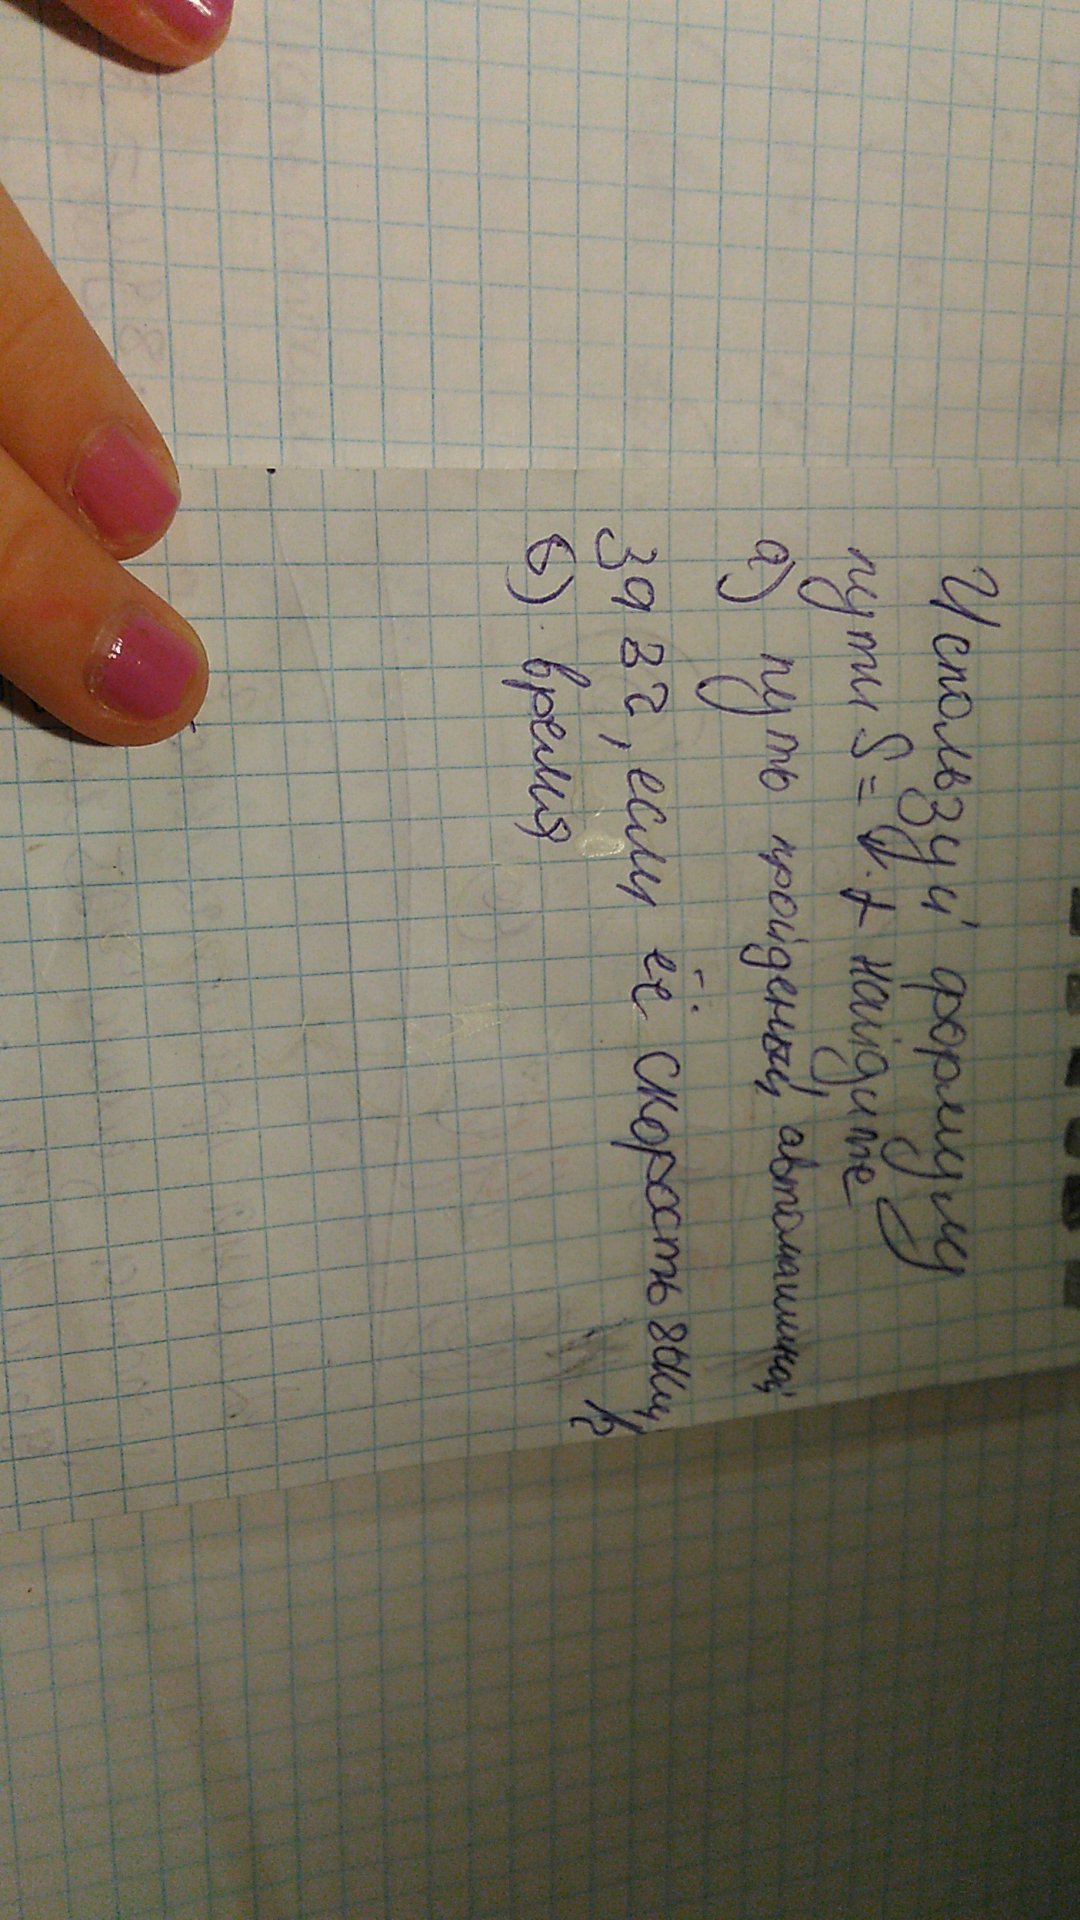 Используй формулу
пути S = V · t найдите
а) путь пройденый автомашиной
за 2 ч, если её скорость 80км/ч
б) время